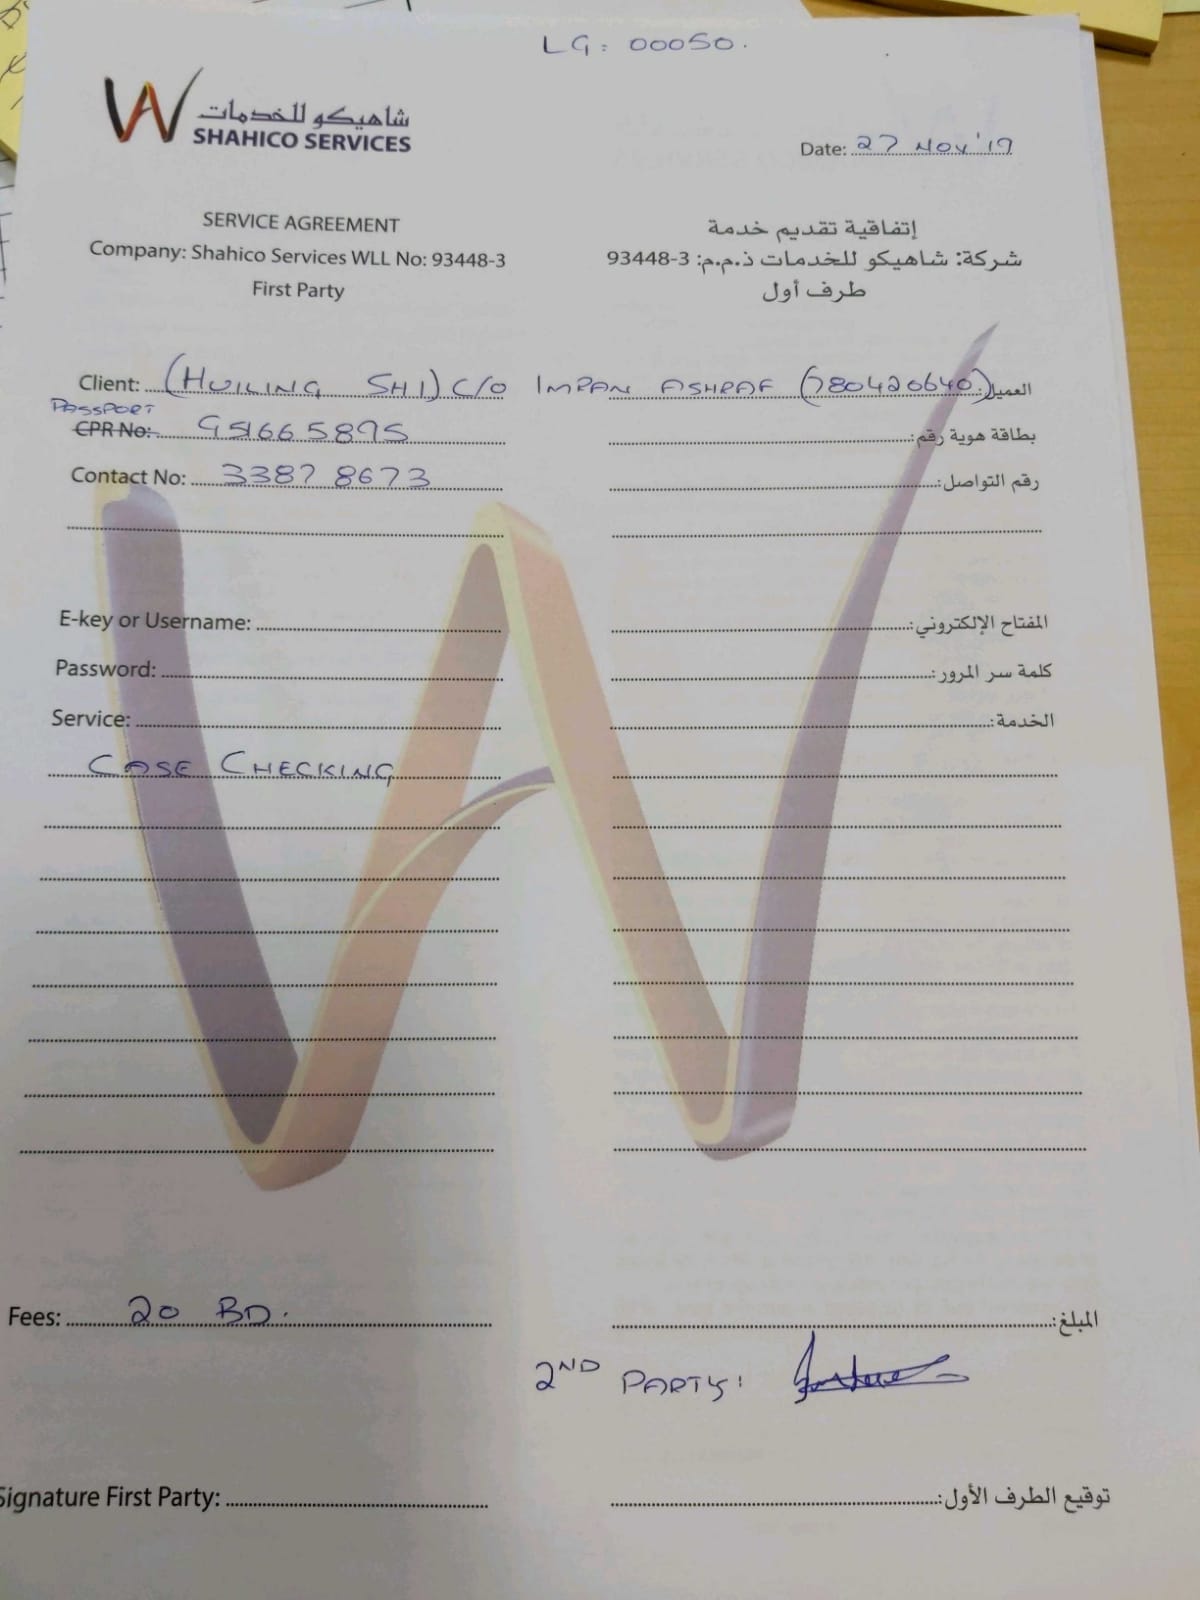 LG: 00050.
شاهيكو للخدمات
SHAHICO SERVICES
Date: 27 NOV '19
SERVICE AGREEMENT
Company: Shahico Services WLL No: 93448-3
First Party
إتفاقية تقديم خدمة
شركة: شاهيكو للخدمات ذ.م.م: 3-93448
طرف أول
Client: (HUILING SHI) C/O IMRAN ASHRAF (780420640) العميل:
PASSPORT
CPR No: G51665895 بطاقة هوية رقم:
Contact No: 3387 8673 رقم التواصل:
E-key or Username: المفتاح الإلكتروني:
Password: كلمة سر المرور:
Service: الخدمة:
CASE CHECKING
Fees: 20 BD. المبلغ:
2ND PARTY:
Signature First Party: توقيع الطرف الأول: